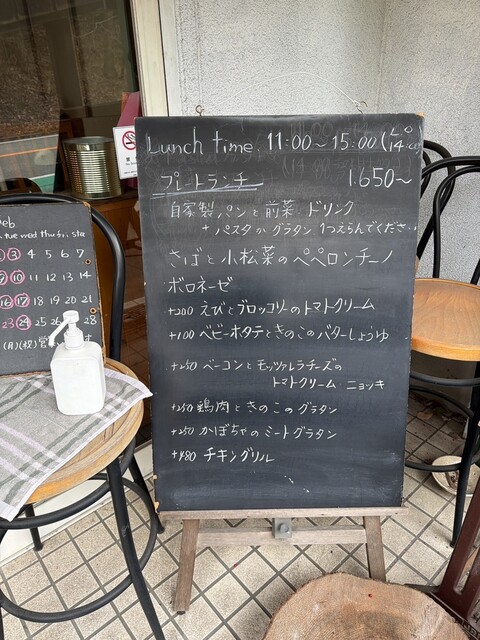 Lunch time 11:00～15:00 (L.O 14:00
プレートランチ 1.650～
自家製パンと前菜 ドリンク
+ パスタかグラタン 1つえらんでください
さばと小松菜のペペロンチーノ
ボロネーゼ
+200 えびとブロッコリーのトマトクリーム
+100 ベビーホタテときのこのバターしょうゆ
+250 ベーコンとモッツァレラチーズの
トマトクリーム ニョッキ
+250 鶏肉ときのこのグラタン
+250 かぼちゃのミートグラタン
+480 チキングリル
eb
tue wed thu fri sta
3 4 5 6 7
9 10 11 12 13 14
16 17 18 19 20 21
23 24 25 26 27 28
(月)(祝)営